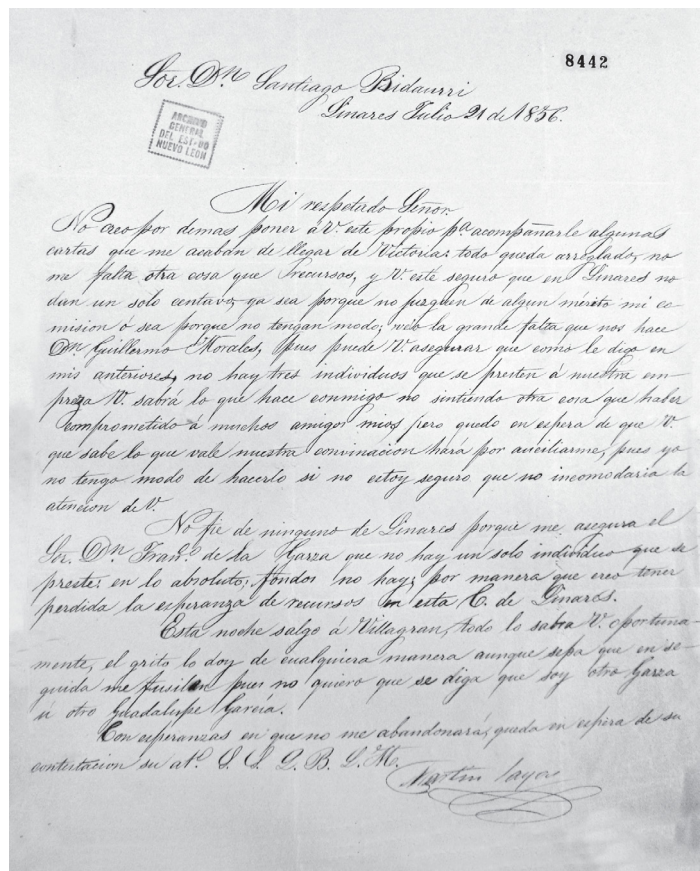 8442
Sor. Dn Santiago Bidaurri
Linares Julio 21 de 1856.
ARCHIVO
GENERAL
DEL ESTADO
NUEVO LEON
Mi respetado Señor.
No creo por demas poner á V. este propio pa. acompañarle algunas
cartas que me acaban de llegar de Victoria: todo queda arreglado, no
me falta otra cosa que recursos, y V. esté seguro que en Linares no
dan un solo centavo, ya sea porque no juzguen de algun mérito mi co-
mision ó sea porque no tengan modo; veo la grande falta que nos hace
Dn. Guillermo Morales, pues puede V. asegurar que como le digo en
mis anteriores, no hay tres individuos que se presten á nuestra em-
preza V. sabrá lo que hace conmigo no sintiendo otra cosa que haber
comprometido á muchos amigos mios pero quedo en espera de que V.
que sabe lo que vale nuestra convinacion hará por auciliarme, pues yo
no tengo modo de hacerlo si no estoy seguro que no incomodaria la
atencion de V.
No fie de ninguno de Linares porque me asegura el
Sor. Dn. Franco. de la Garza que no hay un solo individuo que se
preste: en lo absoluto; fondos no hay; por manera que creo tener
perdida la esperanza de recursos en esta C. de Linares.
Esta noche salgo á Villagran, todo lo sabra V. oportuna-
mente, el grito lo doy de cualquiera manera aunque sepa que en se-
guida me fusilen pues no quiero que se diga que soy otro Garza
ú otro Guadalupe Garcia.
Con esperanzas en que no me abandonará, queda en espera de su
contestacion su ato. S. S. Q. B. S. M.
Martin Zayas